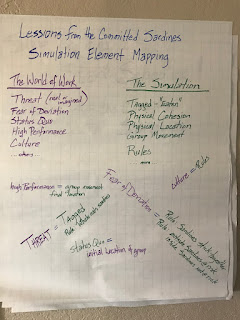 Lessons from the Committed Sardines
Simulation Element Mapping
The World of Work
Threat (real or imagined)
Fear of Deviation
Status Quo
High Performance
Culture
...others...
The Simulation
Tagged -
Physical Cohesion
Physical Location
Group Movement
Rules
more
High Performance = group movement
final location
Fear of Deviation
Culture = Rules
THREAT = Tagged
Rule -
Status Quo =
initial location of group
Rule: Sardines stick together
Rule: